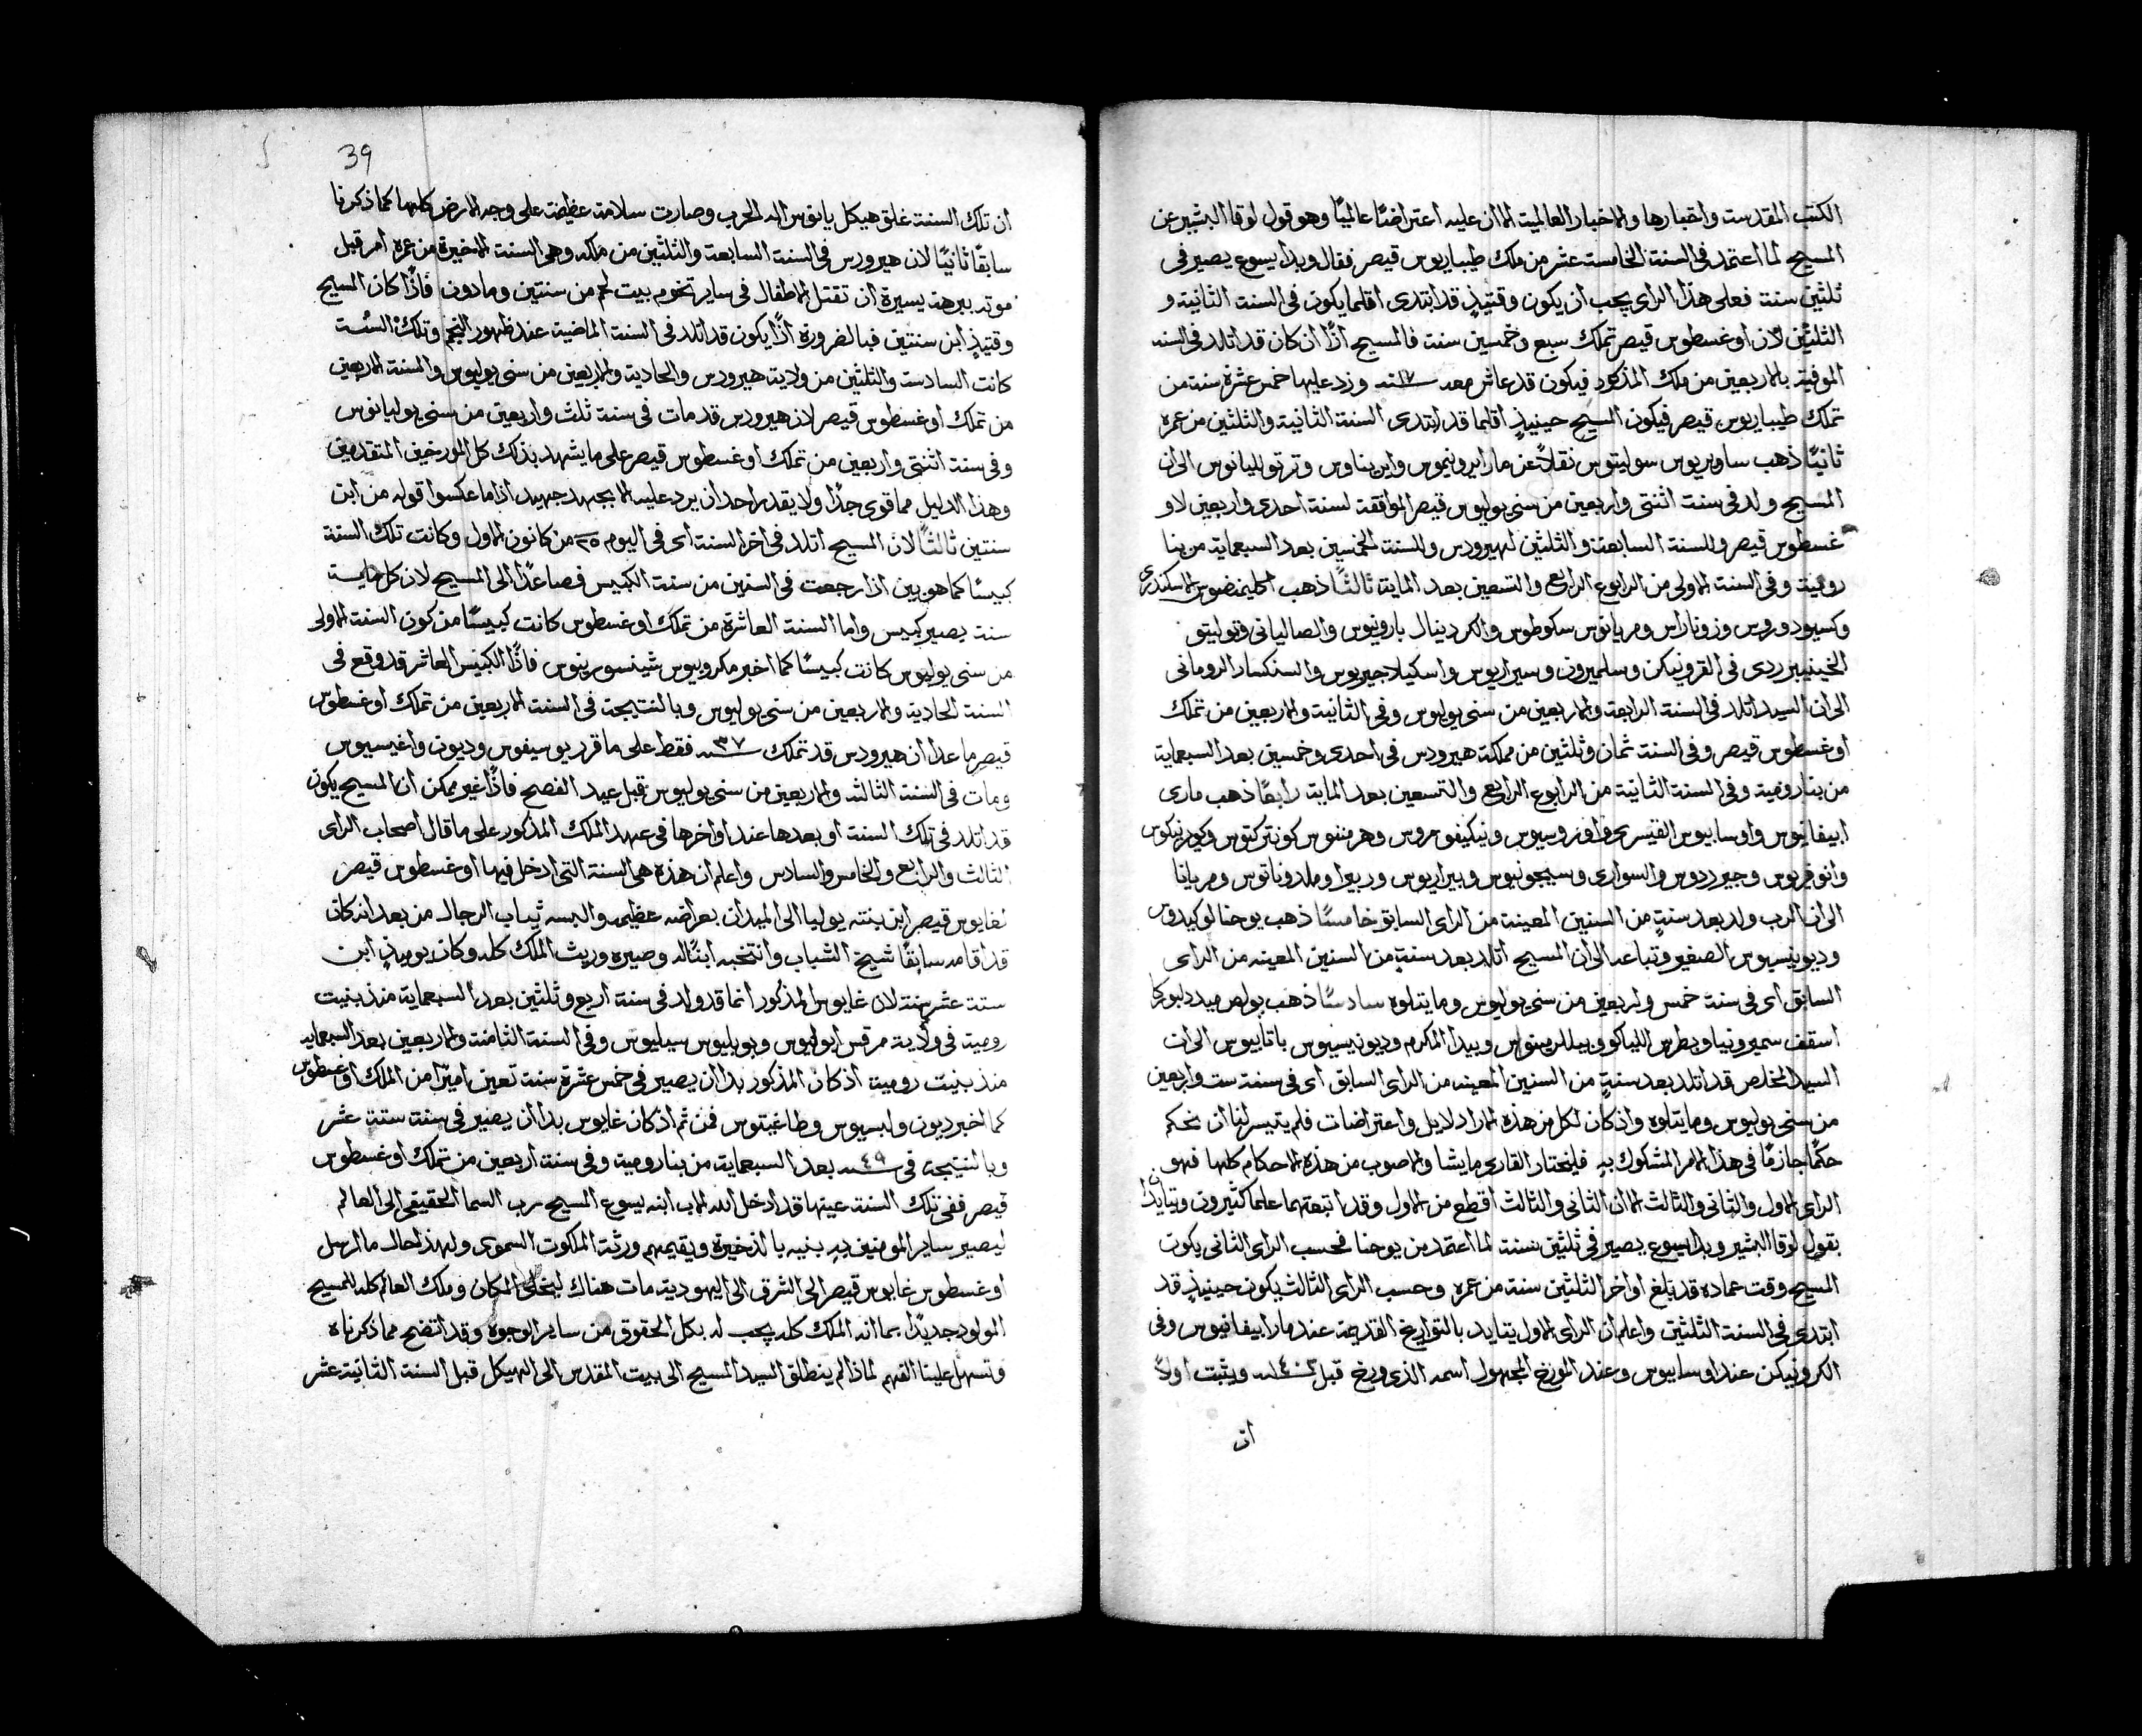 الكتب المقدسة واخبارها والاخبار العالمية الا ان عليه اعتراضًا عالميًا وهو قول لوقا البشير عن
المسيح لما اعتمد في السنة الخامسة عشر من ملك طيباريوس قيصر فقال وبدا يسوع يصير في
ثلثين سنة فعلى هذا الراى يجب ان يكون وقتيذٍ قد ابتدى اقلما يكون في السنة الثانية و
الثلثين لان اوغسطوس قيصر تملك سبع وخمسين سنة فالمسيح اذًا ان كان قد اتلد في السنه
الموفية بالاربعين من ملك المذكور فيكون قد عاش معه ١٧ سنه وزد عليها خمس عشرة سنة من
تملك طيباريوس قيصر فيكون المسيح حينيذٍ اقلما قد ابتدى السنة الثانية والثلثين من عمره
ثانيًا ذهب ساويريوس سولبيتوس نقلاً عن مار ايرونيموس وايريناوس وترتوليانوس الى ان
المسيح ولد في سنة اثنتى واربعين من سنى يوليوس قيصر الموافقة لسنة احدى واربعين لاو
غسطوس قيصر وللسنة السابعة والثلثين لهيرودس وللسنة الخمسين بعد السبعماية من بنا
رومية وفي السنة الاولى من الرابوع الرابع والتسعين بعد الماية ثالثًا ذهب اكليمنضوس الاسكندرى
وكسيودوروس وزوناراس ومريانوس سكوطوس والكردينال بارونيوس والصاليانى
في القرونيكن وسلميرون والسنكسار الرومانى
الى ان السيد اتلد في السنة الرابعة والاربعين من سنى يوليوس وفي الثانية والاربعين من تملك
اوغسطوس قيصر وفي السنة ثمان وثلثين من مملكة هيرودس في احدى وخمسين بعد السبعماية
من بنا رومية وفي السنة الثانية من الرابوع الرابع والتسعين بعد الماية رابعًا ذهب مارى
ابيفانيوس واوسابيوس القيسرى واوروسيوس ونيكيفوروس وهرمنوس
وانوفريوس والسوارى وسيجونيوس ومريانا
الى ان الرب ولد بعد سنةٍ من السنين المعينة من الراى السابق خامسًا ذهب يوحنا لوكيدوس
وديونيسيوس الصغير وتباعه الى ان المسيح اتلد بعد سنةٍ من السنين المعينه من الراى
السابق اى في سنة خمس واربعين من سنى يوليوس وما يتلوه سادسًا ذهب بولص ميدلبوركا
اسقف سميرونيا وبطرس اللياكو وبيلارمينوس وبيدا المكرم وديونيسيوس باتابيوس الى ان
السيد المخلص قد اتلد بعد سنةٍ من السنين المعينه من الراى السابق اى في سنة ست واربعين
من سنى يوليوس وما يتلوه واذ كان لكل من هذه الارا دلايل واعتراضات فلم يتيسر لنا ان نحكم
حكمًا جازمًا في هذا الامر المشكوك بهِ فليختار القارى ما يشا والاصوب من هذه الاحكام كلها فهو
الراى الاول والثانى والثالث الا ان الثانى والثالث اقطع من الاول وقد اتبعتهما علما كثيرون ويتايدا
بقول لوقا البشير وبدا يسوع يصير في ثلثين سنة لما اعتمد من يوحنا فحسب الراى الثانى يكون
المسيح وقت عماده قد بلغ اواخر الثلثين سنة من عمره وحسب الراى الثالث يكون حينيذٍ قد
ابتدى في السنة الثلثين واعلم ان الراى الاول يتايد بالتواريخ القديمة عند مار ابيفانيوس وفي
الكرونيكن عند اوسابيوس وعند المورخ المجهول اسمه الذى ورخ قبل ويثبت اولاً
ان
39
ان تلك السنة غلق هيكل يانوس اله الحرب وصارت سلامة عظيمة على وجه الارض كلها كما ذكرنا
سابقًا ثانيًا لان هيرودس في السنة السابعة والثلثين من ملكه وهى السنة الاخيرة من عمره امر قبل
موته ببرهة يسيرة ان تقتل الاطفال في ساير تخوم بيت لحم من سنتين وما دون فاذًا كان المسيح
وقتيذٍ ابن سنتين فبالضرورة اذًا يكون قد اتلد في السنة الماضية عند ظهور النجم وتلك السنة
كانت السادسة والثلثين من ولاية هيرودس والحادية والاربعين من سنى يوليوس والسنة الاربعين
من تملك اوغسطوس قيصر لان هيرودس قد مات في سنة ثلث واربعين من سنى يوليانوس
وفي سنة اثنتى واربعين من تملك اوغسطوس قيصر على ما يشهد بذلك كل المورخين المتقدمين
وهذا الدليل مما قوى جدًا ولا يقدر احد ان يرد عليه الا بجهد جهيد اذا ما عكسوا قوله من ابن
سنتين ثالثًا لان المسيح اتلد في اخر السنة اى في اليوم ٢٥ من كانون الاول وكانت تلك السنة
كبيسًا كما هو بين اذا رجعت في السنين من سنة الكبيس فصاعدًا الى المسيح لان كل ماية
سنة يصير كبيس واما السنة العاشرة من تملك اوغسطوس كانت كبيسًا من كون السنة الاولى
من سنى يوليوس كانت كبيسًا كما اخبر مكروبيوس شينسورينوس فاذًا الكبيس العاشر قد وقع في
السنة الحادية والاربعين من سنى يوليوس وبالنتيجة في السنة الاربعين من تملك اوغسطوس
قيصر ما عدا ان هيرودس قد تملك ٣٧ سنه فقط على ما قرر يوسيفوس وديون واغيسيبوس
ومات في السنة الثالثه والاربعين من سنى يوليوس قبل عيد الفصح فاذًا غير ممكن ان المسيح يكون
قد اتلد في تلك السنة او بعدها عند اواخرها في عهد الملك المذكور على ما قال اصحاب الراى
الثالث والرابع والخامس والسادس واعلم ان هذه هى السنة التى ادخل فيها اوغسطوس قيصر
لغايوس قيصر ابن بنته يوليا الى الميدان بعراضه عظيمه والبسه ثياب الرجال من بعد انه كان
قد اقامه سابقًا شيخ الشباب وانتخبه ابنًا له وصيره وريث الملك كله وكان يوميذٍ ابن
ستة عشر سنة لان غايوس المذكور انما قد ولد في سنة اربع وثلثين بعد السبعماية منذ بنيت
رومية في ولاية مرقس ابوليوس وبوبليوس سيليوس وفي السنة الثامنة والاربعين بعد السبعمايه
منذ بنيت رومية اذ كان المذكور بدا ان يصير في خمس عشرة سنة تعين اميرًا من الملك اوغسطوس
كما اخبر ديون وليسيوس وطاغيتوس فمن ثم اذ كان غايوس بدا ان يصير في سنة ستة عشر
وبالنتيجة في ٤٩ سنه بعد السبعماية من بنا رومية وفي سنة اربعين من تملك اوغسطوس
قيصر ففي تلك السنة عينها قد ادخل الله الاب ابنه يسوع المسيح رب السما الحقيقى الى العالم
ليصير ساير المومنين بهِ بنيه بالذخيرة ويقيمهم ورثة الملكوت السموى ولهذا لحال ما ارسل
اوغسطوس غايوس قيصر الى الشرق الى اليهودية مات هناك ليخلى المكان وملك العالم كله للمسيح
المولود جديدًا بما انه الملك كله يجب له بكل الحقوق من ساير الوجوه وقد اتضح مما ذكرناه
وتسهل علينا الفهم لماذا لم ينطلق السيد المسيح الى بيت المقدس الى الهيكل قبل السنة الثانية عشر